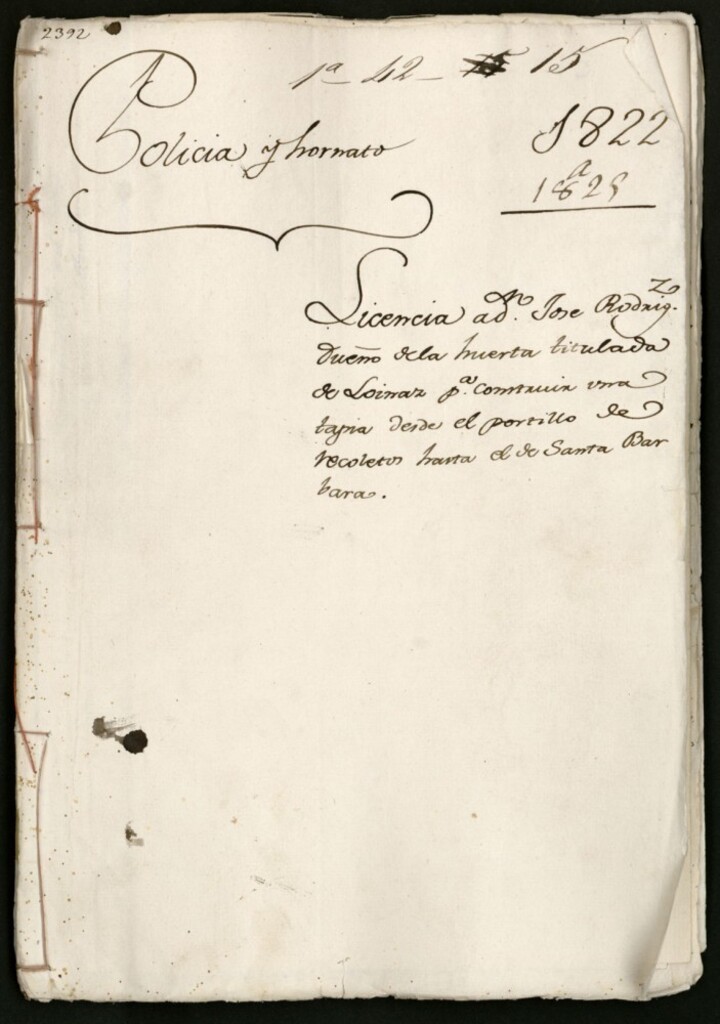 2392
1ª 42 - 15 15
Policia y hornato
1822
a
1825
Licencia a dn. Jose Rodrigz.
dueño de la huerta titulada
de Loinaz pª. construir una
tapia desde el portillo de
recoletos hasta el de Santa Bar
bara.